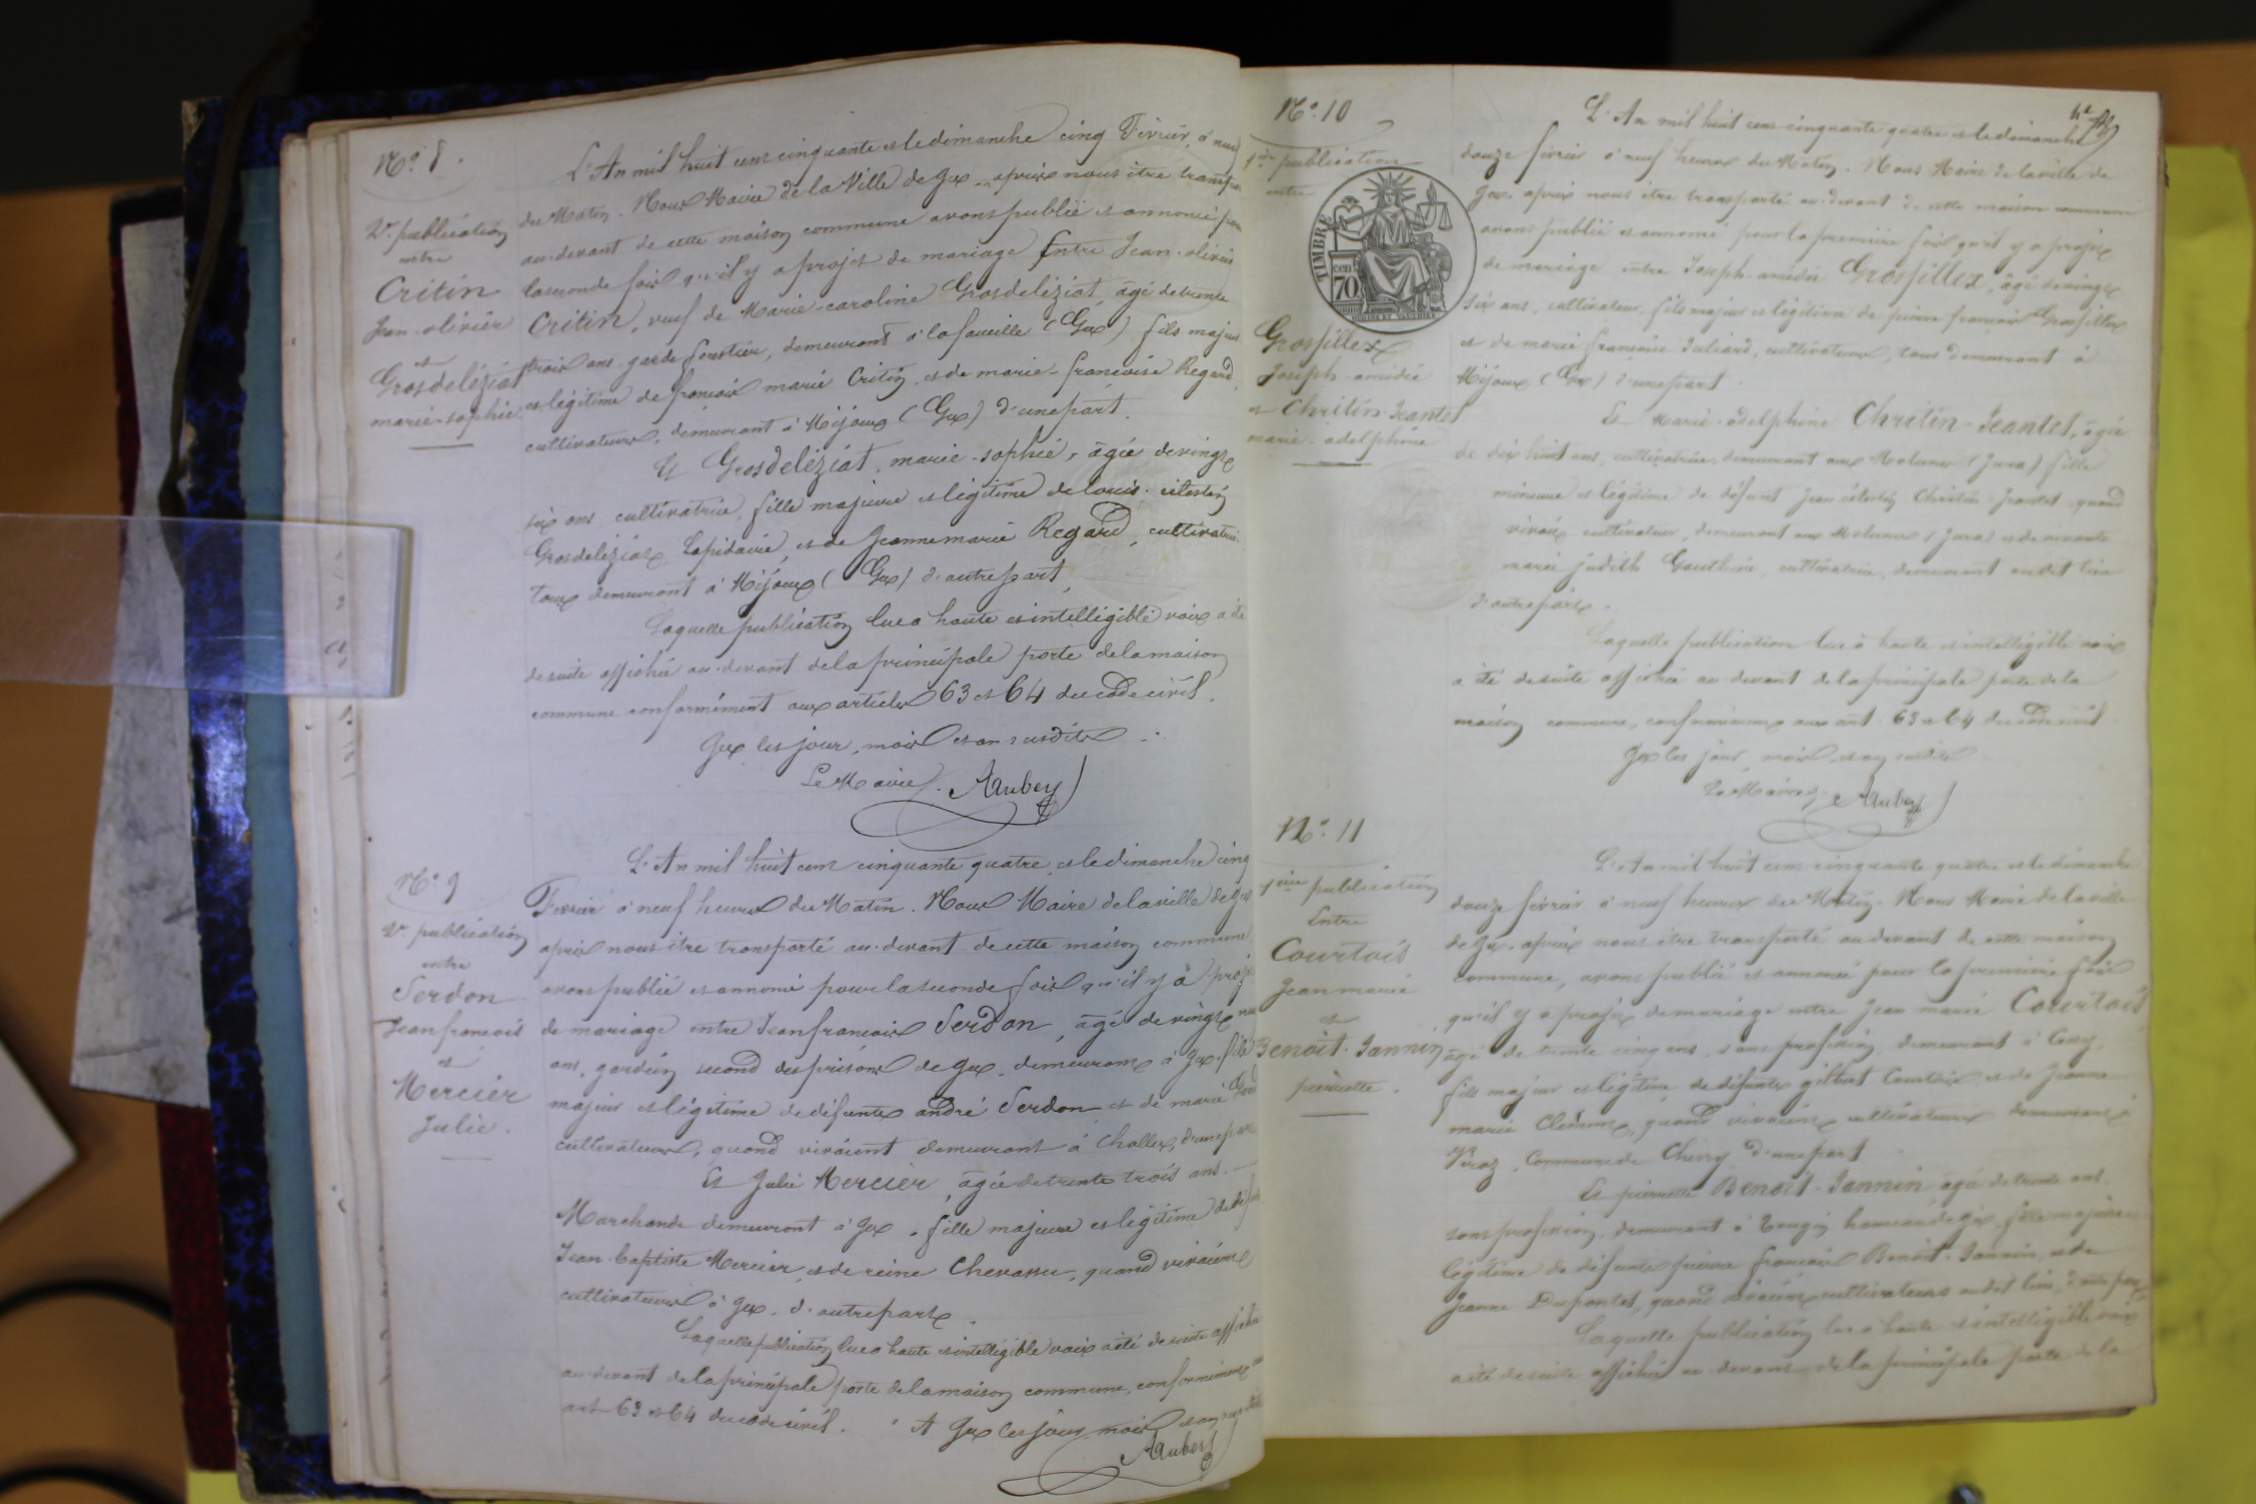 N° 8.
2e publication
entre
Critin
Jean-olivier
et
Grosdeléziat
marie-sophie
L'An mil huit cent cinquante et le dimanche cinq Février, à neuf
du Matin. Nous Maire de la Ville de Gex, après nous être transpo
au-devant de cette maison commune avons publié et annoncé pour
la seconde fois qu'il y a projet de mariage Entre Jean-olivier
Critin, veuf de Marie-caroline Grosdeléziat, âgé de trente
trois ans, garde forestier, demeurant à la faucille (Gex) fils majeur
et légitime de françois marie Critin, et de marie-françoise Regard,
cultivateurs, demeurant à Mijoux (Gex) d'une part.
Et Grosdeléziat, marie-sophie, âgée de vingt
six ans cultivatrice, fille majeure et légitime de Louis-célestin
Grosdeléziat Lapidaire, et de Jeanne marie Regard, cultivatri
tous demeurant à Mijoux (Gex) d'autre part,
Laquelle publication lue à haute et intelligible voix a été
de suite affichée au-devant de la principale porte de la maison
commune conformément aux articles 63 et 64 du code civil.
Gex les jour, mois et an susdits
Le Maire. Aubery
N° 9
2e publication
entre
Serdon
Jean françois
et
Mercier
Julie.
L'An mil huit cent cinquante quatre, et le dimanche cinq
Février à neuf heures du Matin. Nous Maire de la ville de Gex
après nous être transporté au-devant de cette maison commune
avons publié et annoncé pour la seconde fois qu'il y a proj
de mariage entre Jean françois Serdon, âgé de vingt
ans, gardien second des prisons de Gex, demeurant à Gex, fils
majeur et légitime de défunts andré Serdon et de marie
cultivateurs, quand vivaient demeurant à Challex, d'une part
Et Julie Mercier, âgée de trente trois ans
Marchande demeurant à Gex, fille majeure et légitime de déf
Jean-baptiste Mercier, et de reine Chevassu, quand vivaient
cultivateurs à Gex, d'autre part.
Laquelle publication lue à haute et intelligible voix a été de suite affichée
au-devant de la principale porte de la maison commune, conformément aux
art 63 et 64 du code civil. A Gex les jour mois et an
Aubery
N° 10
1ère publication
entre
TIMBRE
cen
70
Grosfillex
Joseph-amédée
et Chritin-Jeantet
marie-adelphine
L'An mil huit cent cinquante quatre et le dimanche
douze février à neuf heures du Matin. Nous Maire de la ville de
Gex, après nous être transporté au-devant de cette maison commune
avons publié et annoncé pour la première fois qu'il y a projet
de mariage entre Joseph-amédée Grosfillex, âgé de vingt
six ans, cultivateur, fils majeur et légitime de pierre françois Grosfillex
et de marie françoise Juliard, cultivateurs, tous demeurant à
Mijoux (Gex) d'une part.
Et Marie-adelphine Chritin-Jeantet, âgée
de dix huit ans, cultivatrice, demeurant aux Molunes (Jura) fille
mineure et légitime de défunt Jean célestin Chritin-Jeantet, quand
vivait cultivateur, demeurant aux Molunes (Jura) et de vivante
marie judith Gauthier, cultivatrice, demeurant audit lieu
d'autre part.
Laquelle publication lue à haute et intelligible voix
a été de suite affichée au devant de la principale porte de la
maison commune, conformément aux art 63 et 64 du code civil
Gex les jour mois et an susdits
Le Maire, Aubery
N° 11
1ère publication
Entre
Courtois
Jean marie
et
Benoit-Jannin
pierrette.
L'An mil huit cent cinquante quatre et le dimanche
douze février à neuf heures du Matin. Nous Maire de la ville
de Gex, après nous être transporté au devant de cette maison
commune, avons publié et annoncé pour la première fois
qu'il y a projet de mariage entre Jean marie Courtois
âgé de trente cinq ans, sans profession demeurant à Gex,
fils majeur et légitime de défunts gilbert Courtois, et de Jeanne
marie quand vivaient cultivateurs demeurant à
Commune de d'une part
Et pierrette Benoit-Jannin, âgée de trente ans,
sans profession, demeurant à Tougin hameau de Gex, fille majeure et
légitime de défunts pierre françois Benoit-Jannin, et de
Jeanne Dupontet, quand vivaient cultivateurs audit lieu, d'autre part
Laquelle publication lue à haute et intelligible voix
a été de suite affichée au devant de la principale porte de la